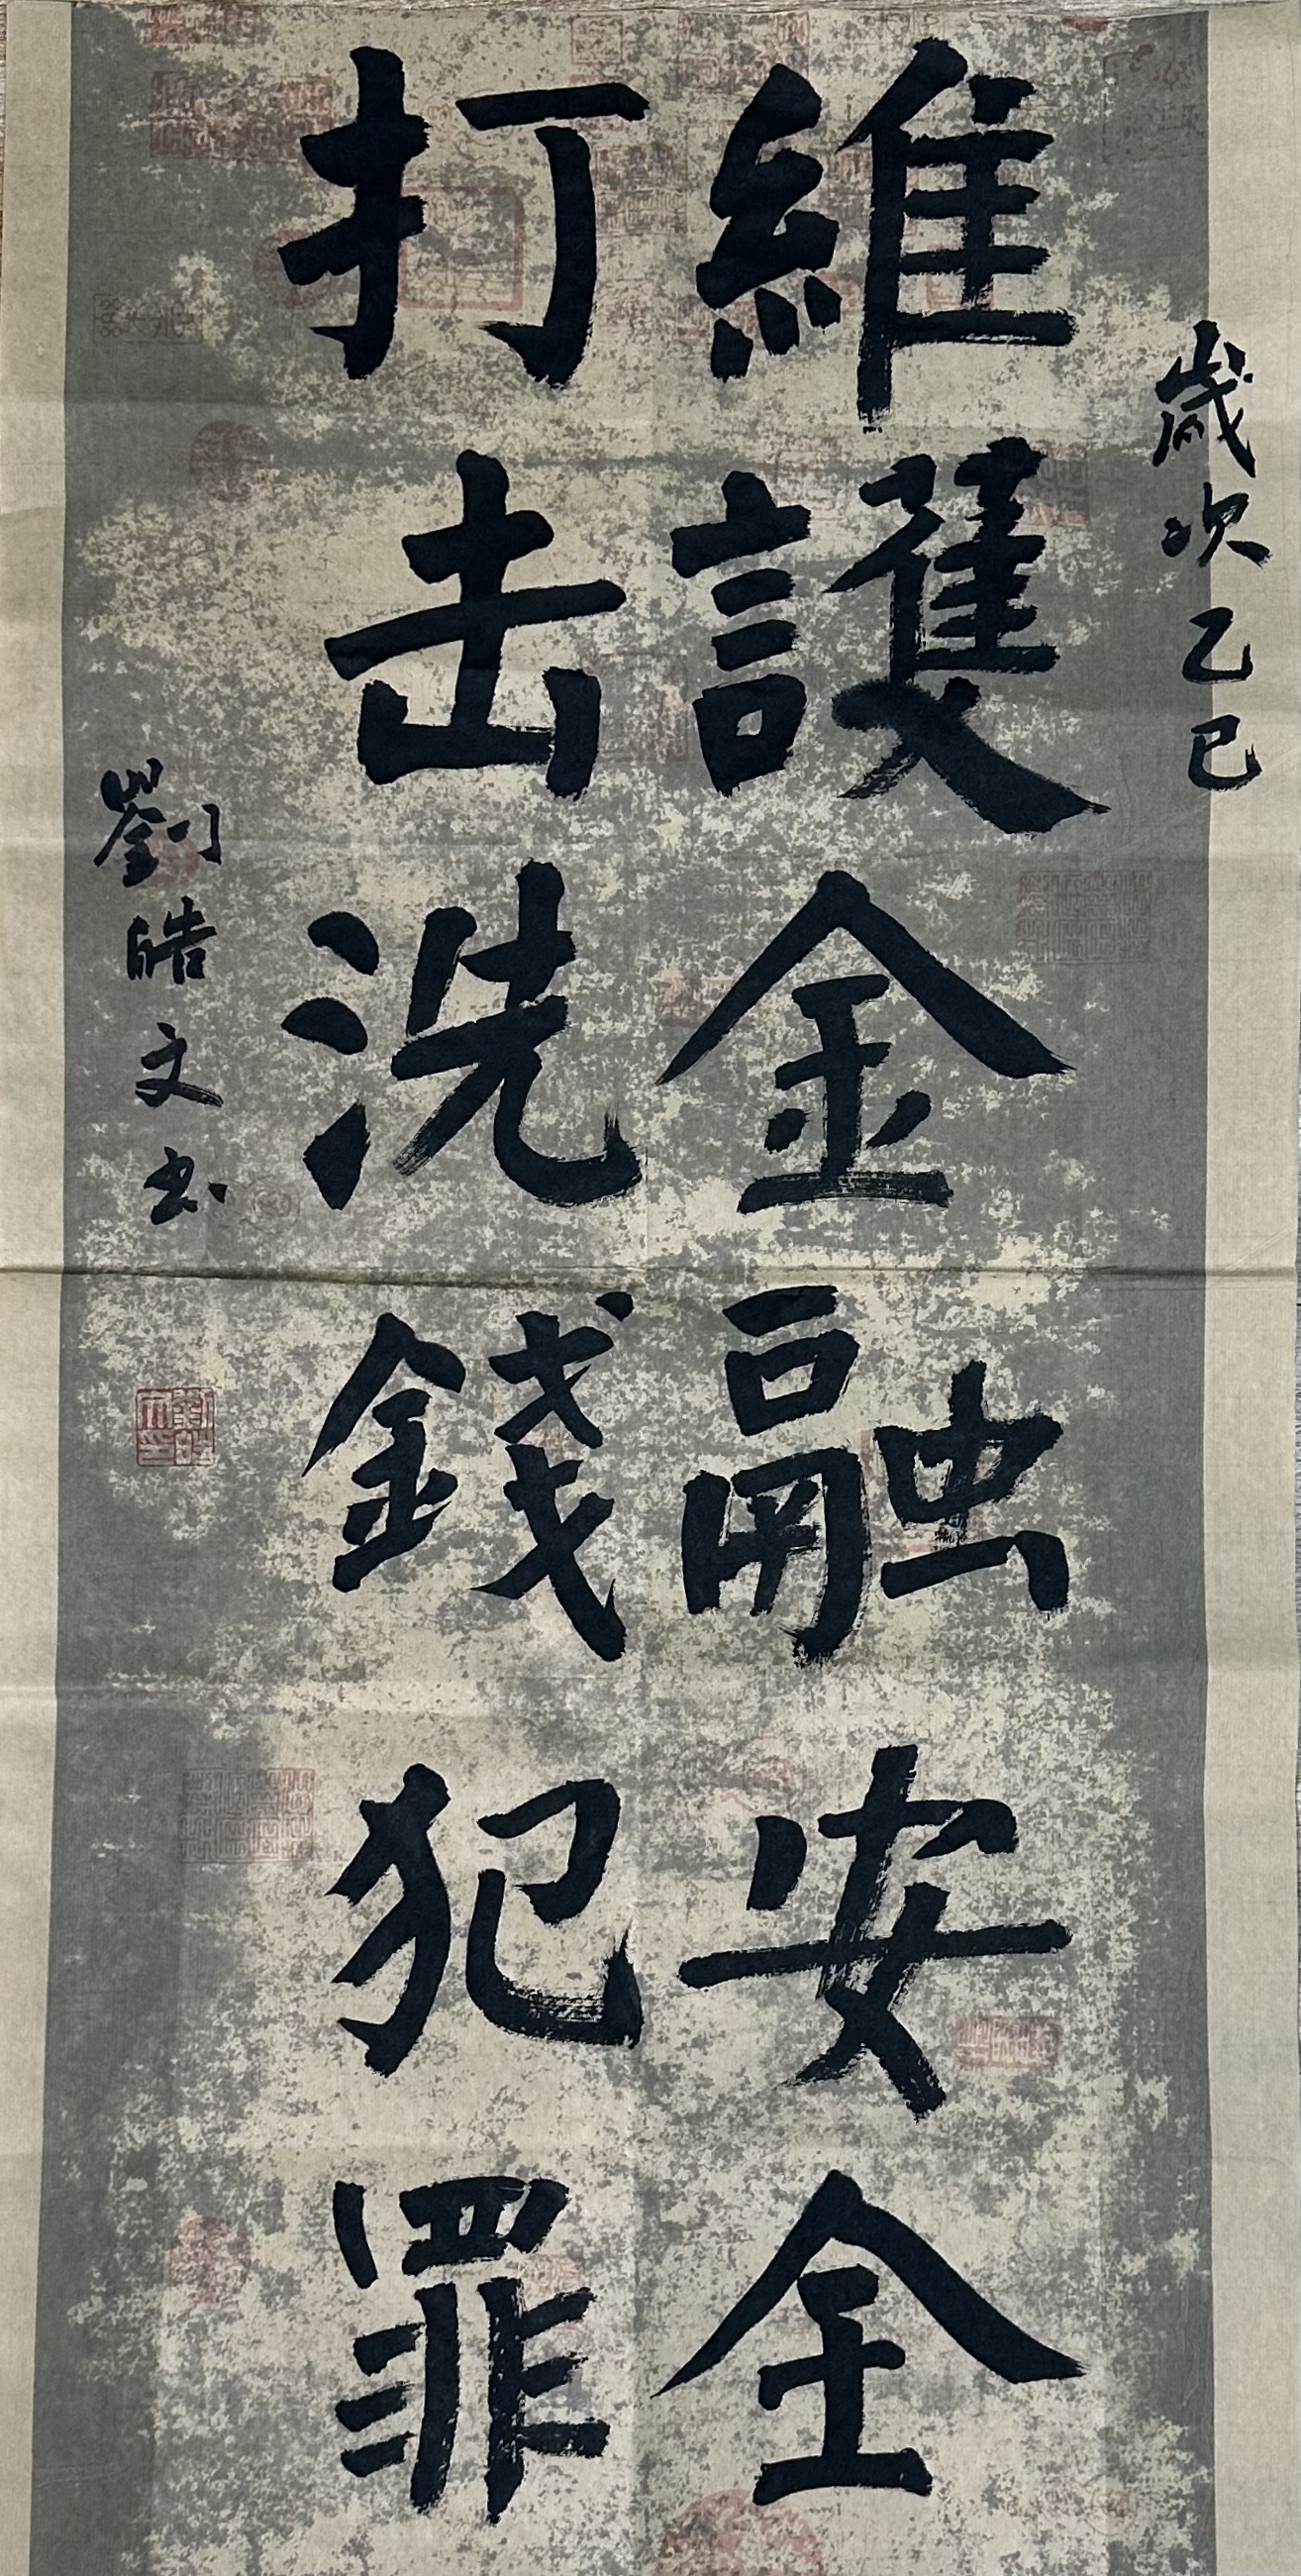 歲次乙巳
維護金融安全
打击洗錢犯罪
劉皓文书